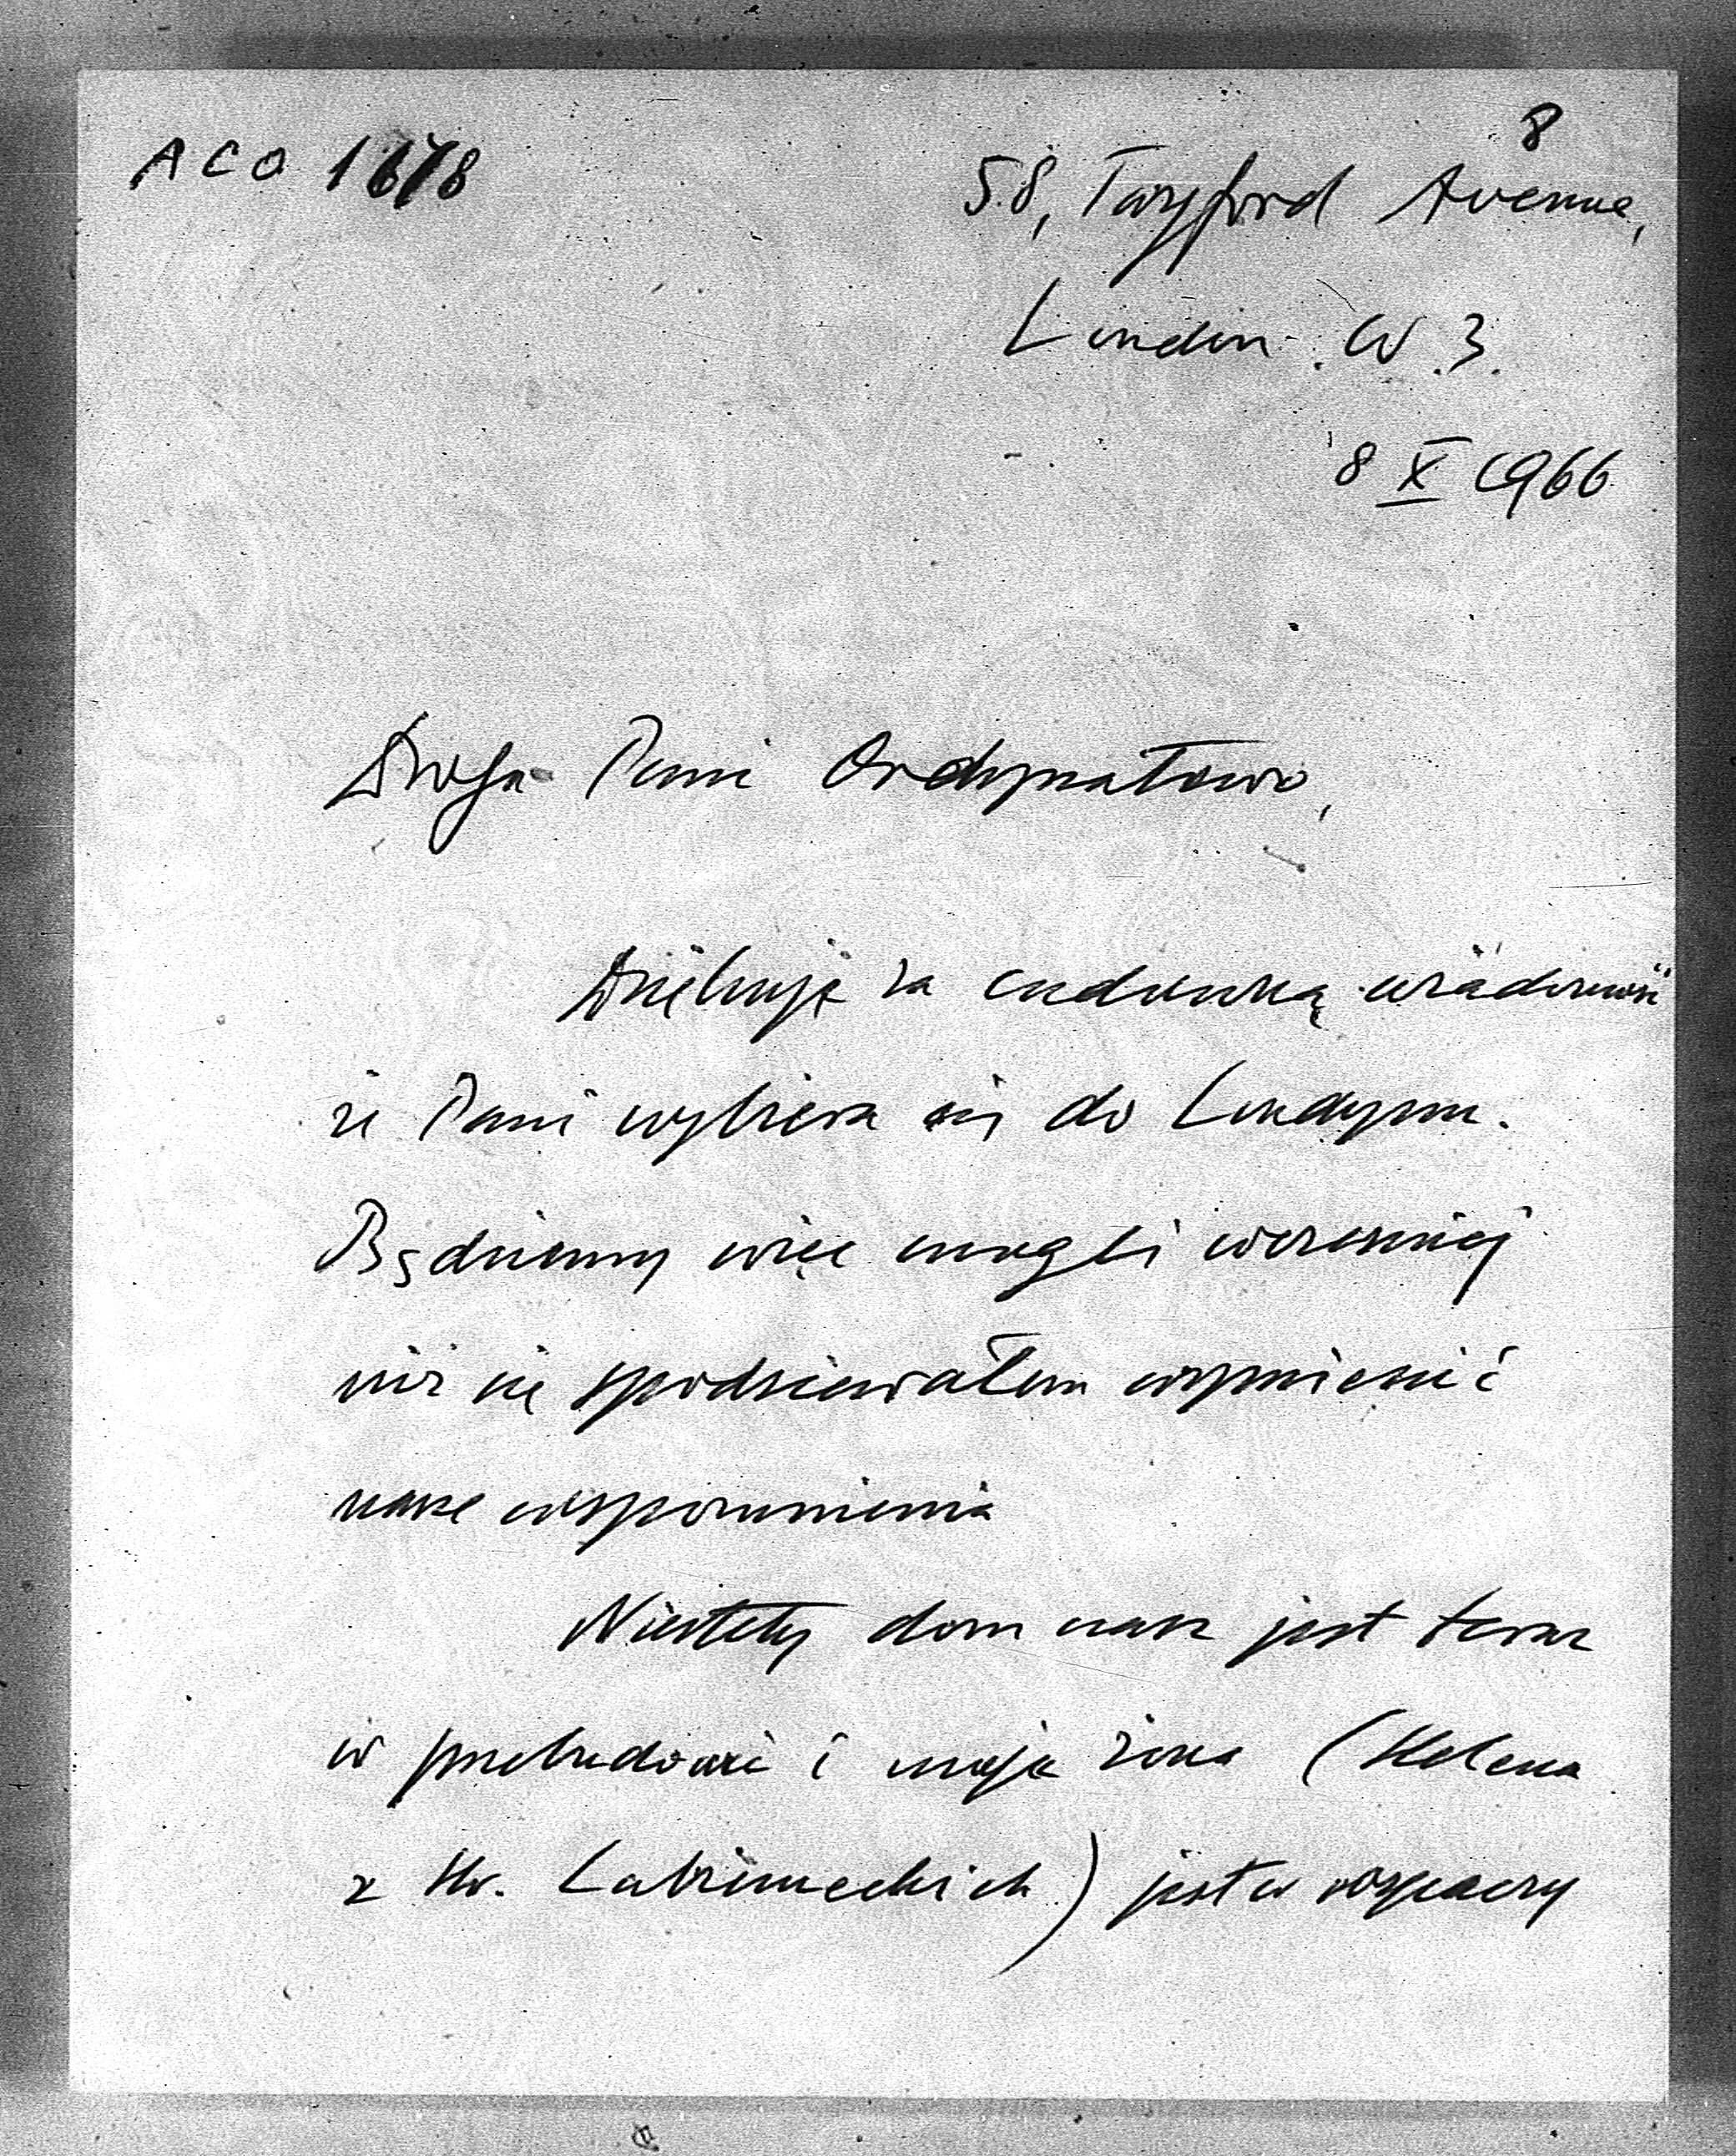 8
ACO 1678
58, Twyford Avenue,
London. W.3.
8 X 1966
Droga Pani Ordynatowo,
Dziękuję za cudowną wiadomość
że Pani wybiera się do Londynu.
Będziemy więc mogli wcześniej
niż się spodziewałem wymienić
nasze wspomnienia
Niestety dom nasz jest teraz
w przebudowie i moja żona (Helena
z Hr. Łubieneckich) jest w rozpaczy